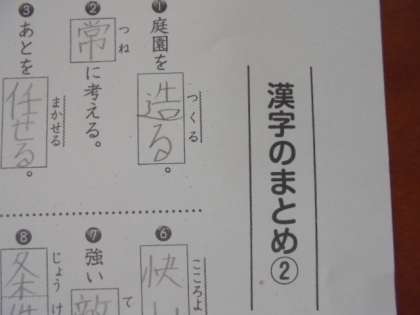 漢字のまとめ②
❶庭園を造る。
つくる
❷常に考える。
つね
❸あとを任せる。
まかせる
❻快
こころよ
❼強い敵
て
❽条件
じょうけ